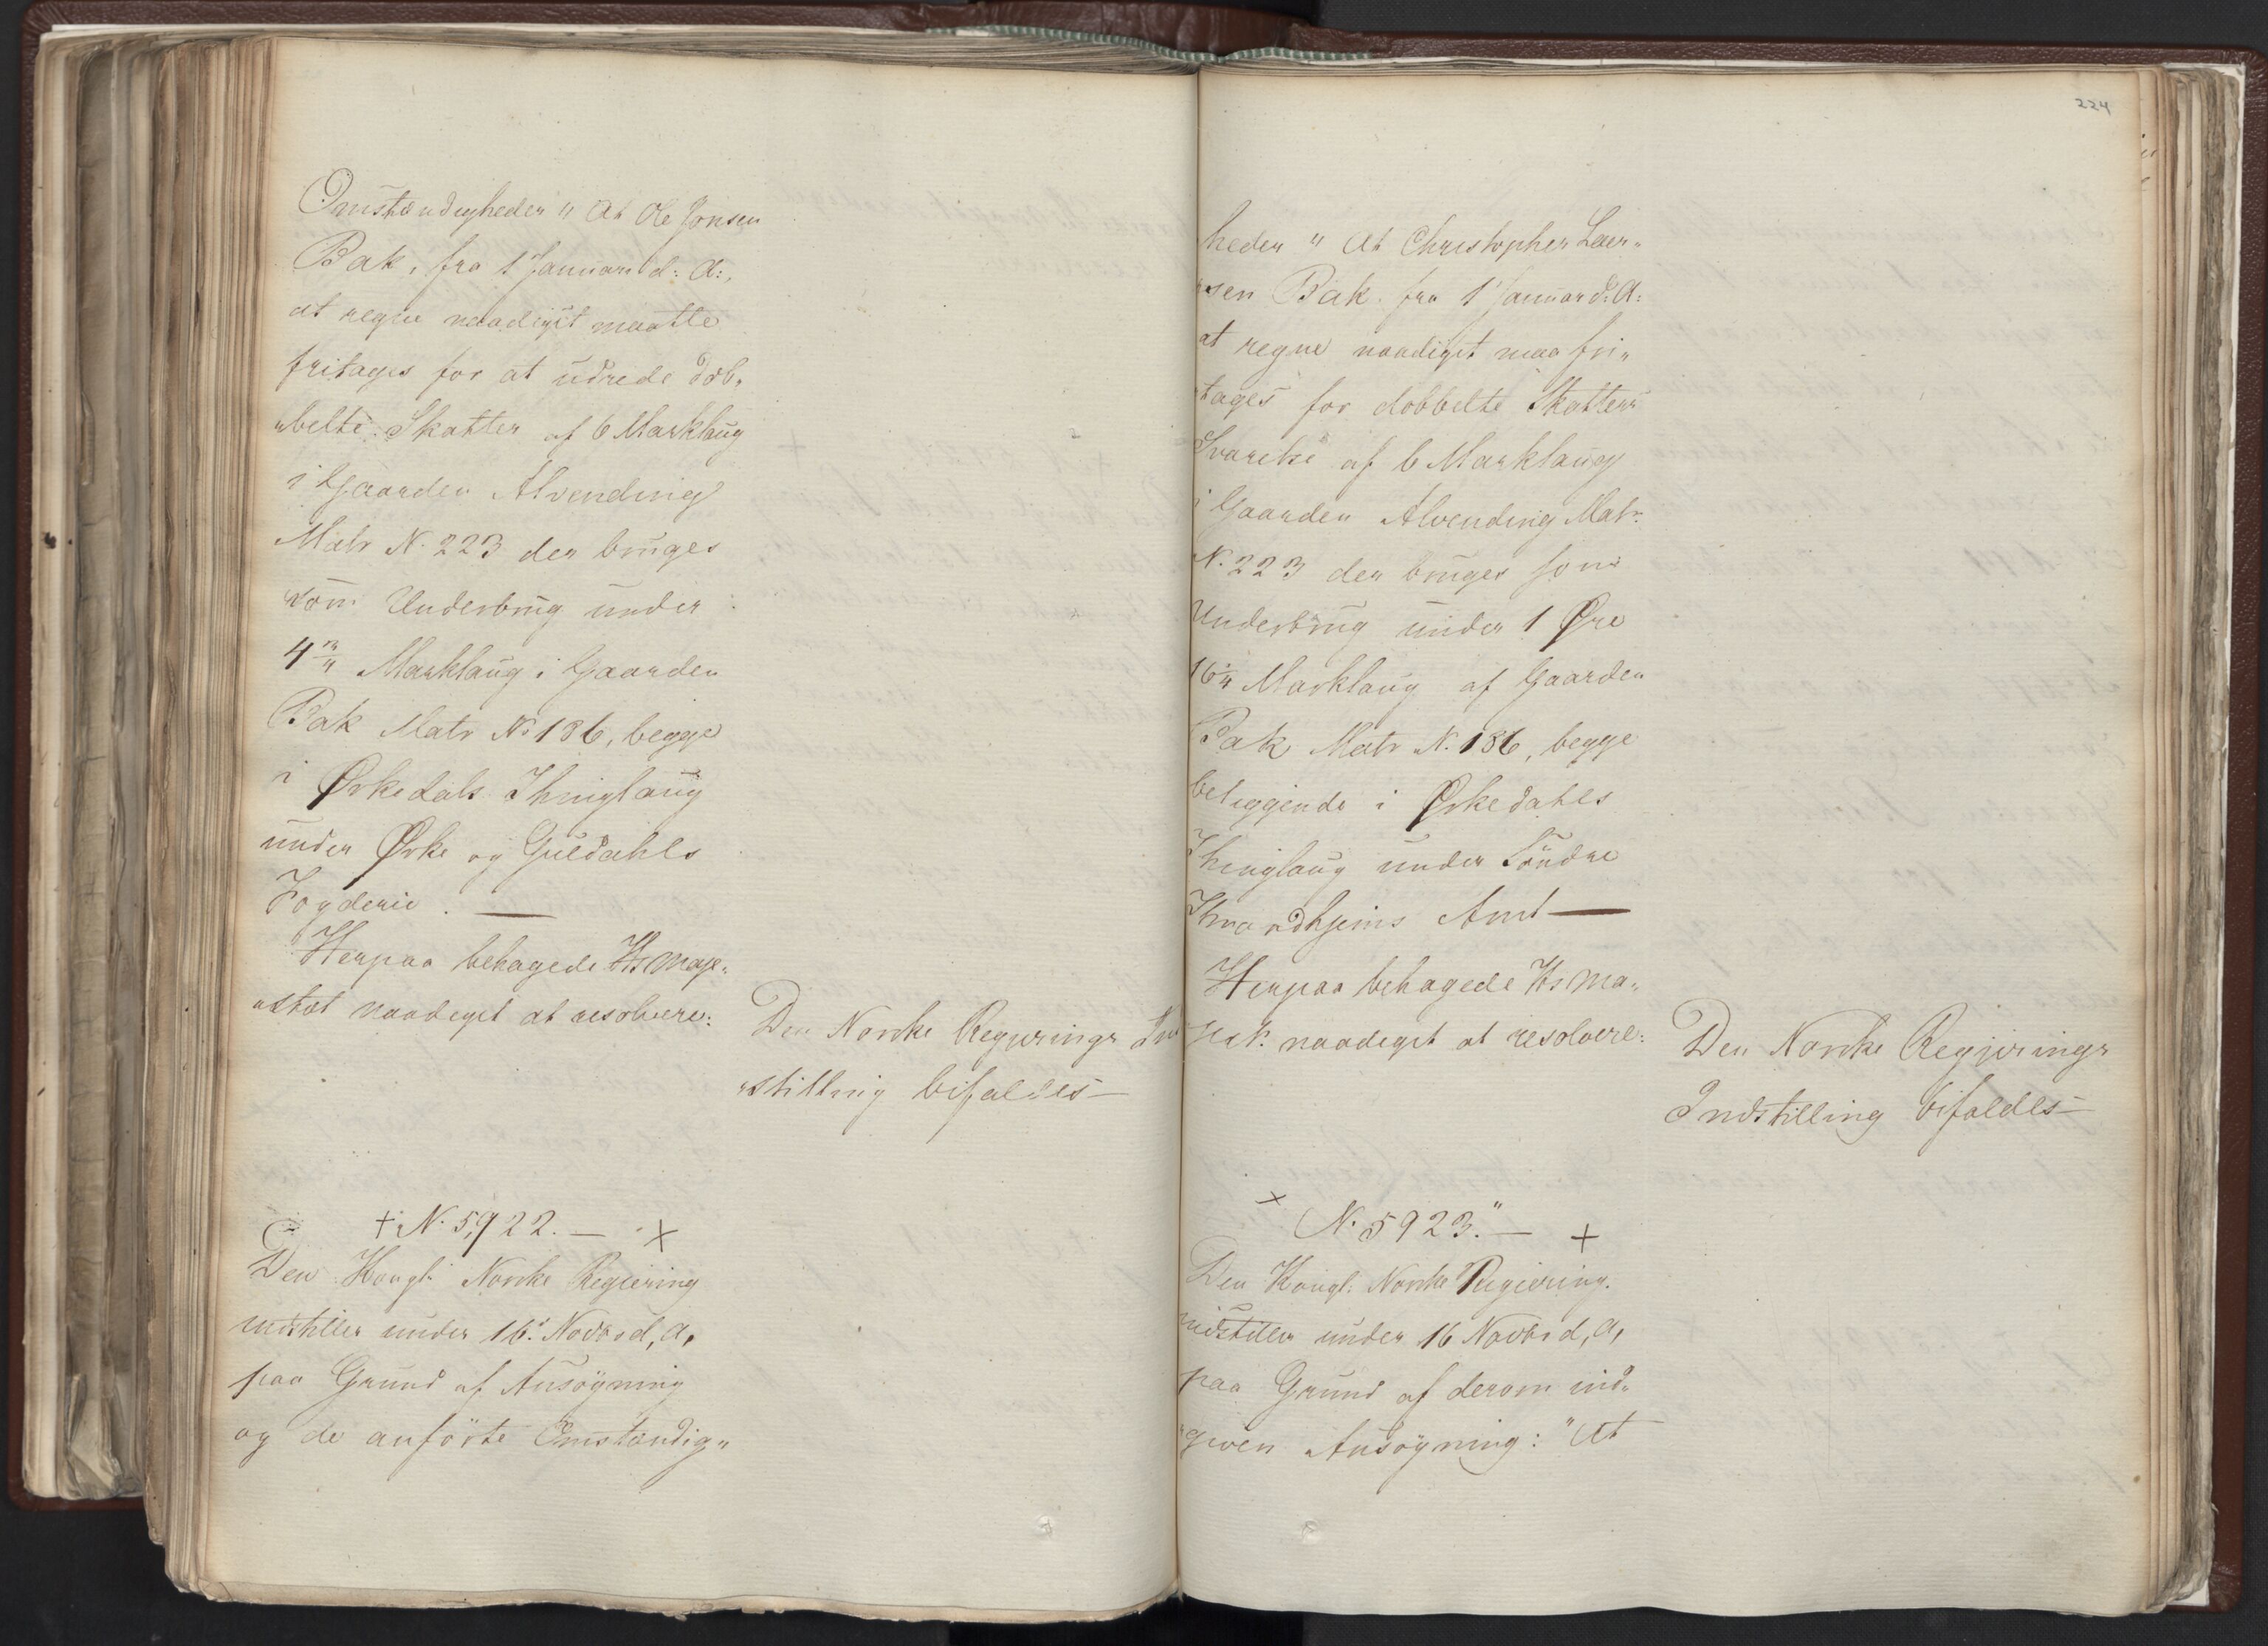 Omstændigheder " At Ole Jonsen
Bak, fra 1 Januari d: A:,
at regne naadigst maatte
fritages for at udrede dob„
„belte Skatter af 6 Marklaug
i Gaarden Alvending
Matr N. 223 der bruges
som Underbrug under
4 3/4 Marklaug i Gaarden
Bak Matr No 186, begge
i Ørkedals Thinglaug
under Ørke og Guldahls
Fogderie. —
Herpaa behagede Hs Maje„
„stæt naadigst at resolvere:
Den Norske Regjerings Ind
„stilling bifaldes —
+ N. 5,922. — X
Den Kongl: Norske Regiering
indstiller under 16d Novbr d, A,
paa Grund af Ansøgning
og de anförte Omstændig„
224
heder " At Christopher Laer„
„sen Bak fra 1 Januar d: A:
at regne naadigst maa fri„
tages for dobbelte Skatters
Svarelse af 6 Marklaug
i Gaarden Alvending Matr
N. 223 der bruges som
Underbrug under 1 Øre
Marklaug af Gaarden
Bak Matr N. 186, begge
beliggende i Ørkedahls
Thinglaug under Söndre
Throndhjems Amt —
Herpaa behagede Hs Ma„
jest. naadigst at resolvere:
Den Norske Regjerings
Indstilling bifaldes —
x N. 5923." — +
Den Kongl: Norske Regiering
indstiller under 16 Novbr d, A,
paa Grund af derom ind„
„given Ansøgning: "At